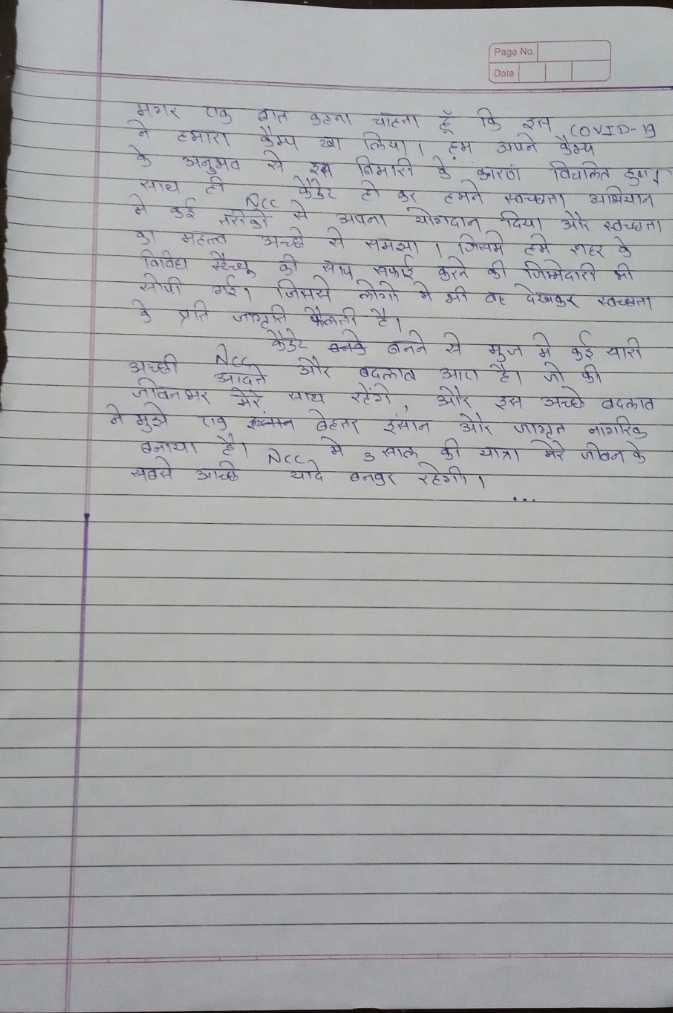 Page No.
Date
मगर एक बात कहना चाहता हूँ कि इस COVID-19
ने हमारा कैम्प खा लिया। हम अपने कैम्प
के अनुभव से इस बिमारी के कारण विचलित हुए।
साथ ही NCC कैडेट हो कर हमने स्वच्छता अभियान
मे कई तरीको से अपना योगदान दिया और स्वच्छता
का महत्व अच्छे से समझा। जिसमे हमे शहर के
विविध स्टैच्यू की साफ सफाई करने की जिम्मेदारी भी
सोपी गई। जिससे लोगो मे भी वह देखकर स्वच्छता
के प्रति जागृति फैलाती है।
NCC कैडेट बनने से मुज मे कई सारी
अच्छी आदते और बदलाव आए है। जो की
जीवनभर मेरे साथ रहेंगे, और इस अच्छे बदलाव
ने मुझे एक बेहतर इंसान और जागृत नागरिक
बनाया है। NCC मे 3 साल की यात्रा मेरे जीवन के
सबसे अच्छी यादे बनकर रहेगी।
...